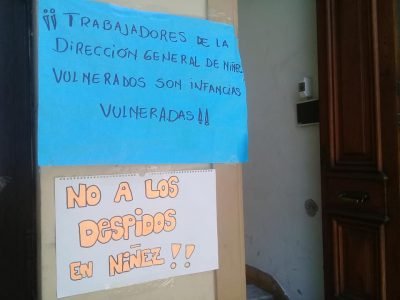 ¡¡TRABAJADORES DE LA
DIRECCIÓN GENERAL DE NIÑEZ
VULNERADOS SON INFANCIAS
VULNERADAS!!
NO A LOS
DESPIDOS
EN NIÑEZ!!